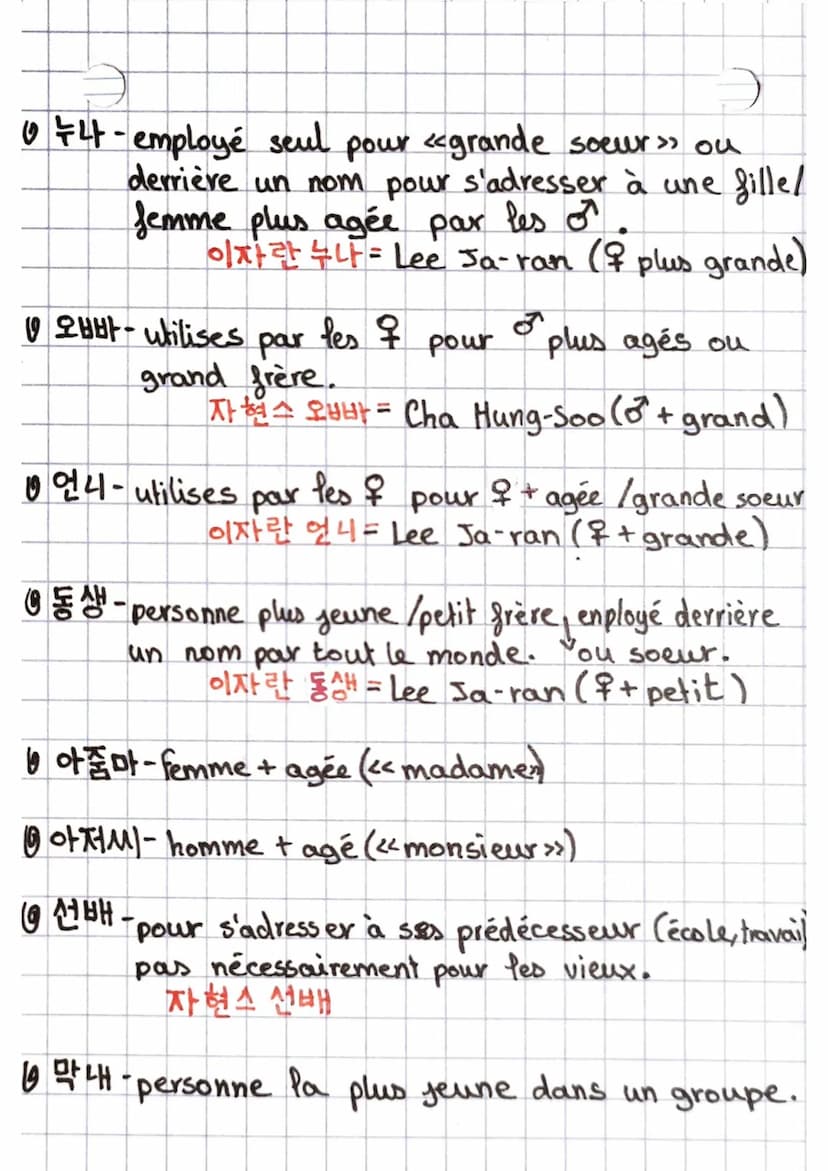 누나 - employé seul pour «grande soeur» ou
derrière un nom pour s'adresser à une fille/
femme plus agée par les ♂.
이자란 누나 = Lee Ja-ran (♀ plus grande)
오빠 - utilises par les ♀ pour ♂ plus agés ou
grand frère.
자현스 오빠 = Cha Hung-Soo (♂ + grand)
언니 - utilises par les ♀ pour ♀ + agée / grande soeur
이자란 언니 = Lee Ja-ran (♀ + grande)
동생 - personne plus jeune / petit frère, enployé derrière
un nom par tout le monde. ou soeur.
이자란 동생 = Lee Ja-ran (♀ + petit)
아줌마 - femme + agée («madame»)
아저씨 - homme + agé («monsieur»)
선배 - pour s'adresser à ses prédécesseur (école, travail)
pas nécessairement pour les vieux.
자현스 선배
막내 - personne la plus jeune dans un groupe.